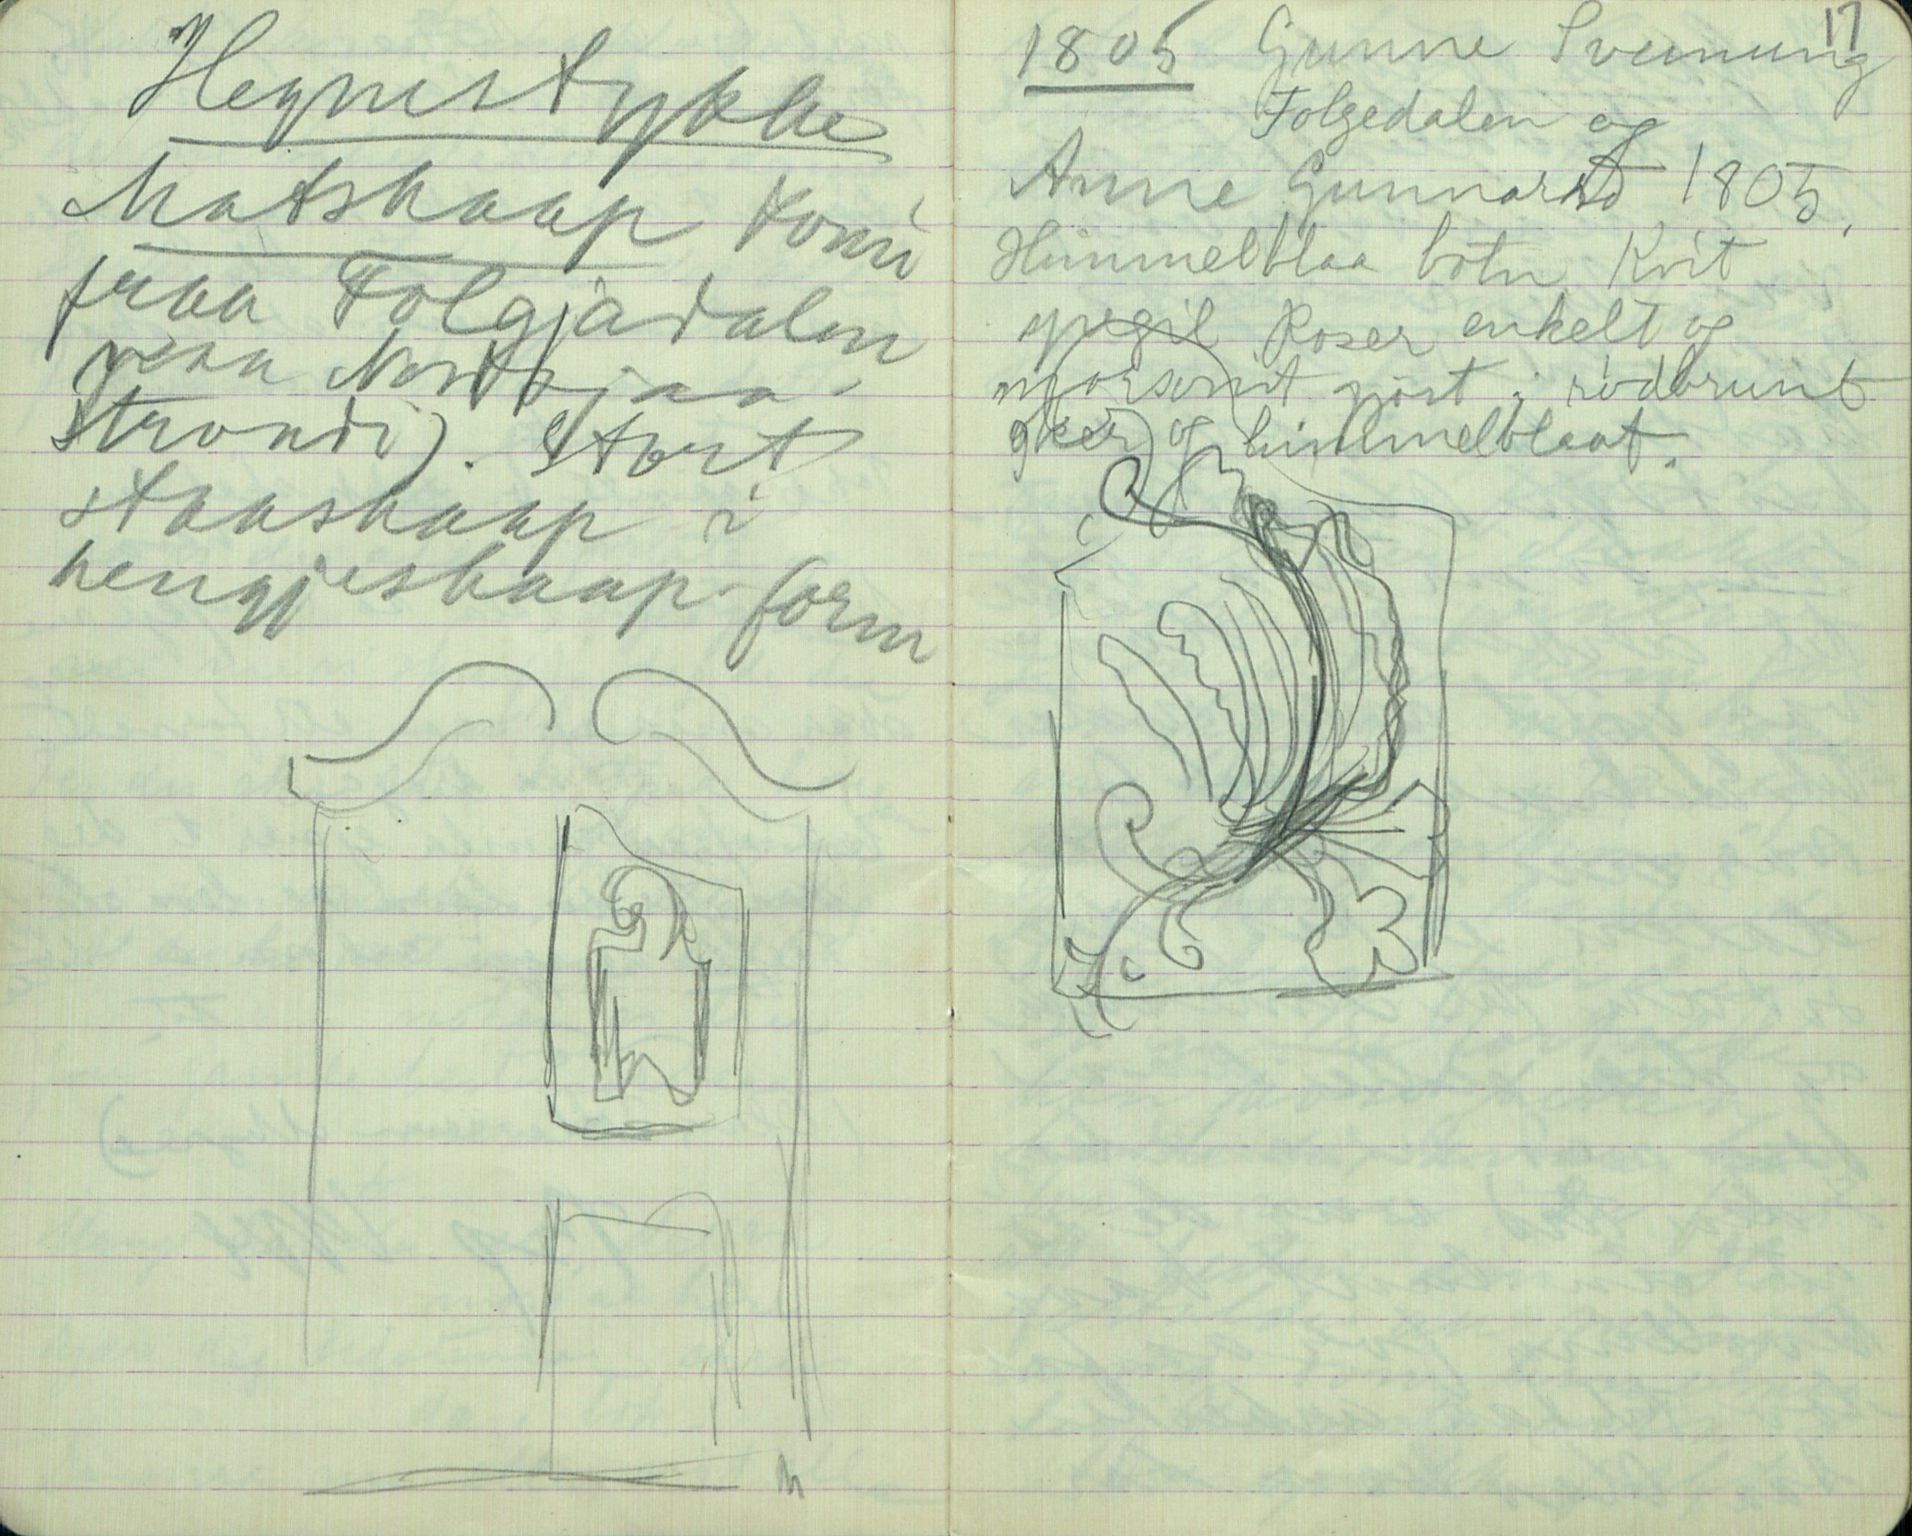 Hegnestykke
Matskaap komi
fraa Folgjadalen
Nordsjaa-
strondi). Stort
staaskaap i
hengjeskaap-form
17
1805 Gunne Sveinung
Folgedalen og
Anne Gunnarsd 1805.
Himmelblaa botn Kvit
spegil Roser enkelt og
morsomt gjort i rødbrunt
og himmelblaat.